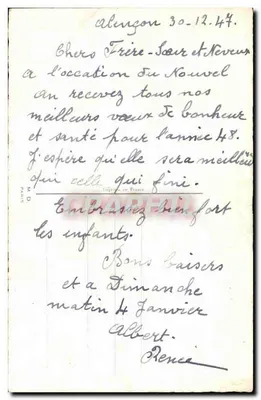 Alençon 30-12.47.
Chers Frère-Sœur et Neveux
a l'occation du Nouvel
an recevez tous nos
meilleurs vœux de bonheur
et santé pour l'année 48.
J'espère qu'elle sera meilleure
que celle qui fini.
Embrassez bien fort
les enfants.
Bons baisers
et a Dimanche
matin 4 Janvier
Albert.
Renée